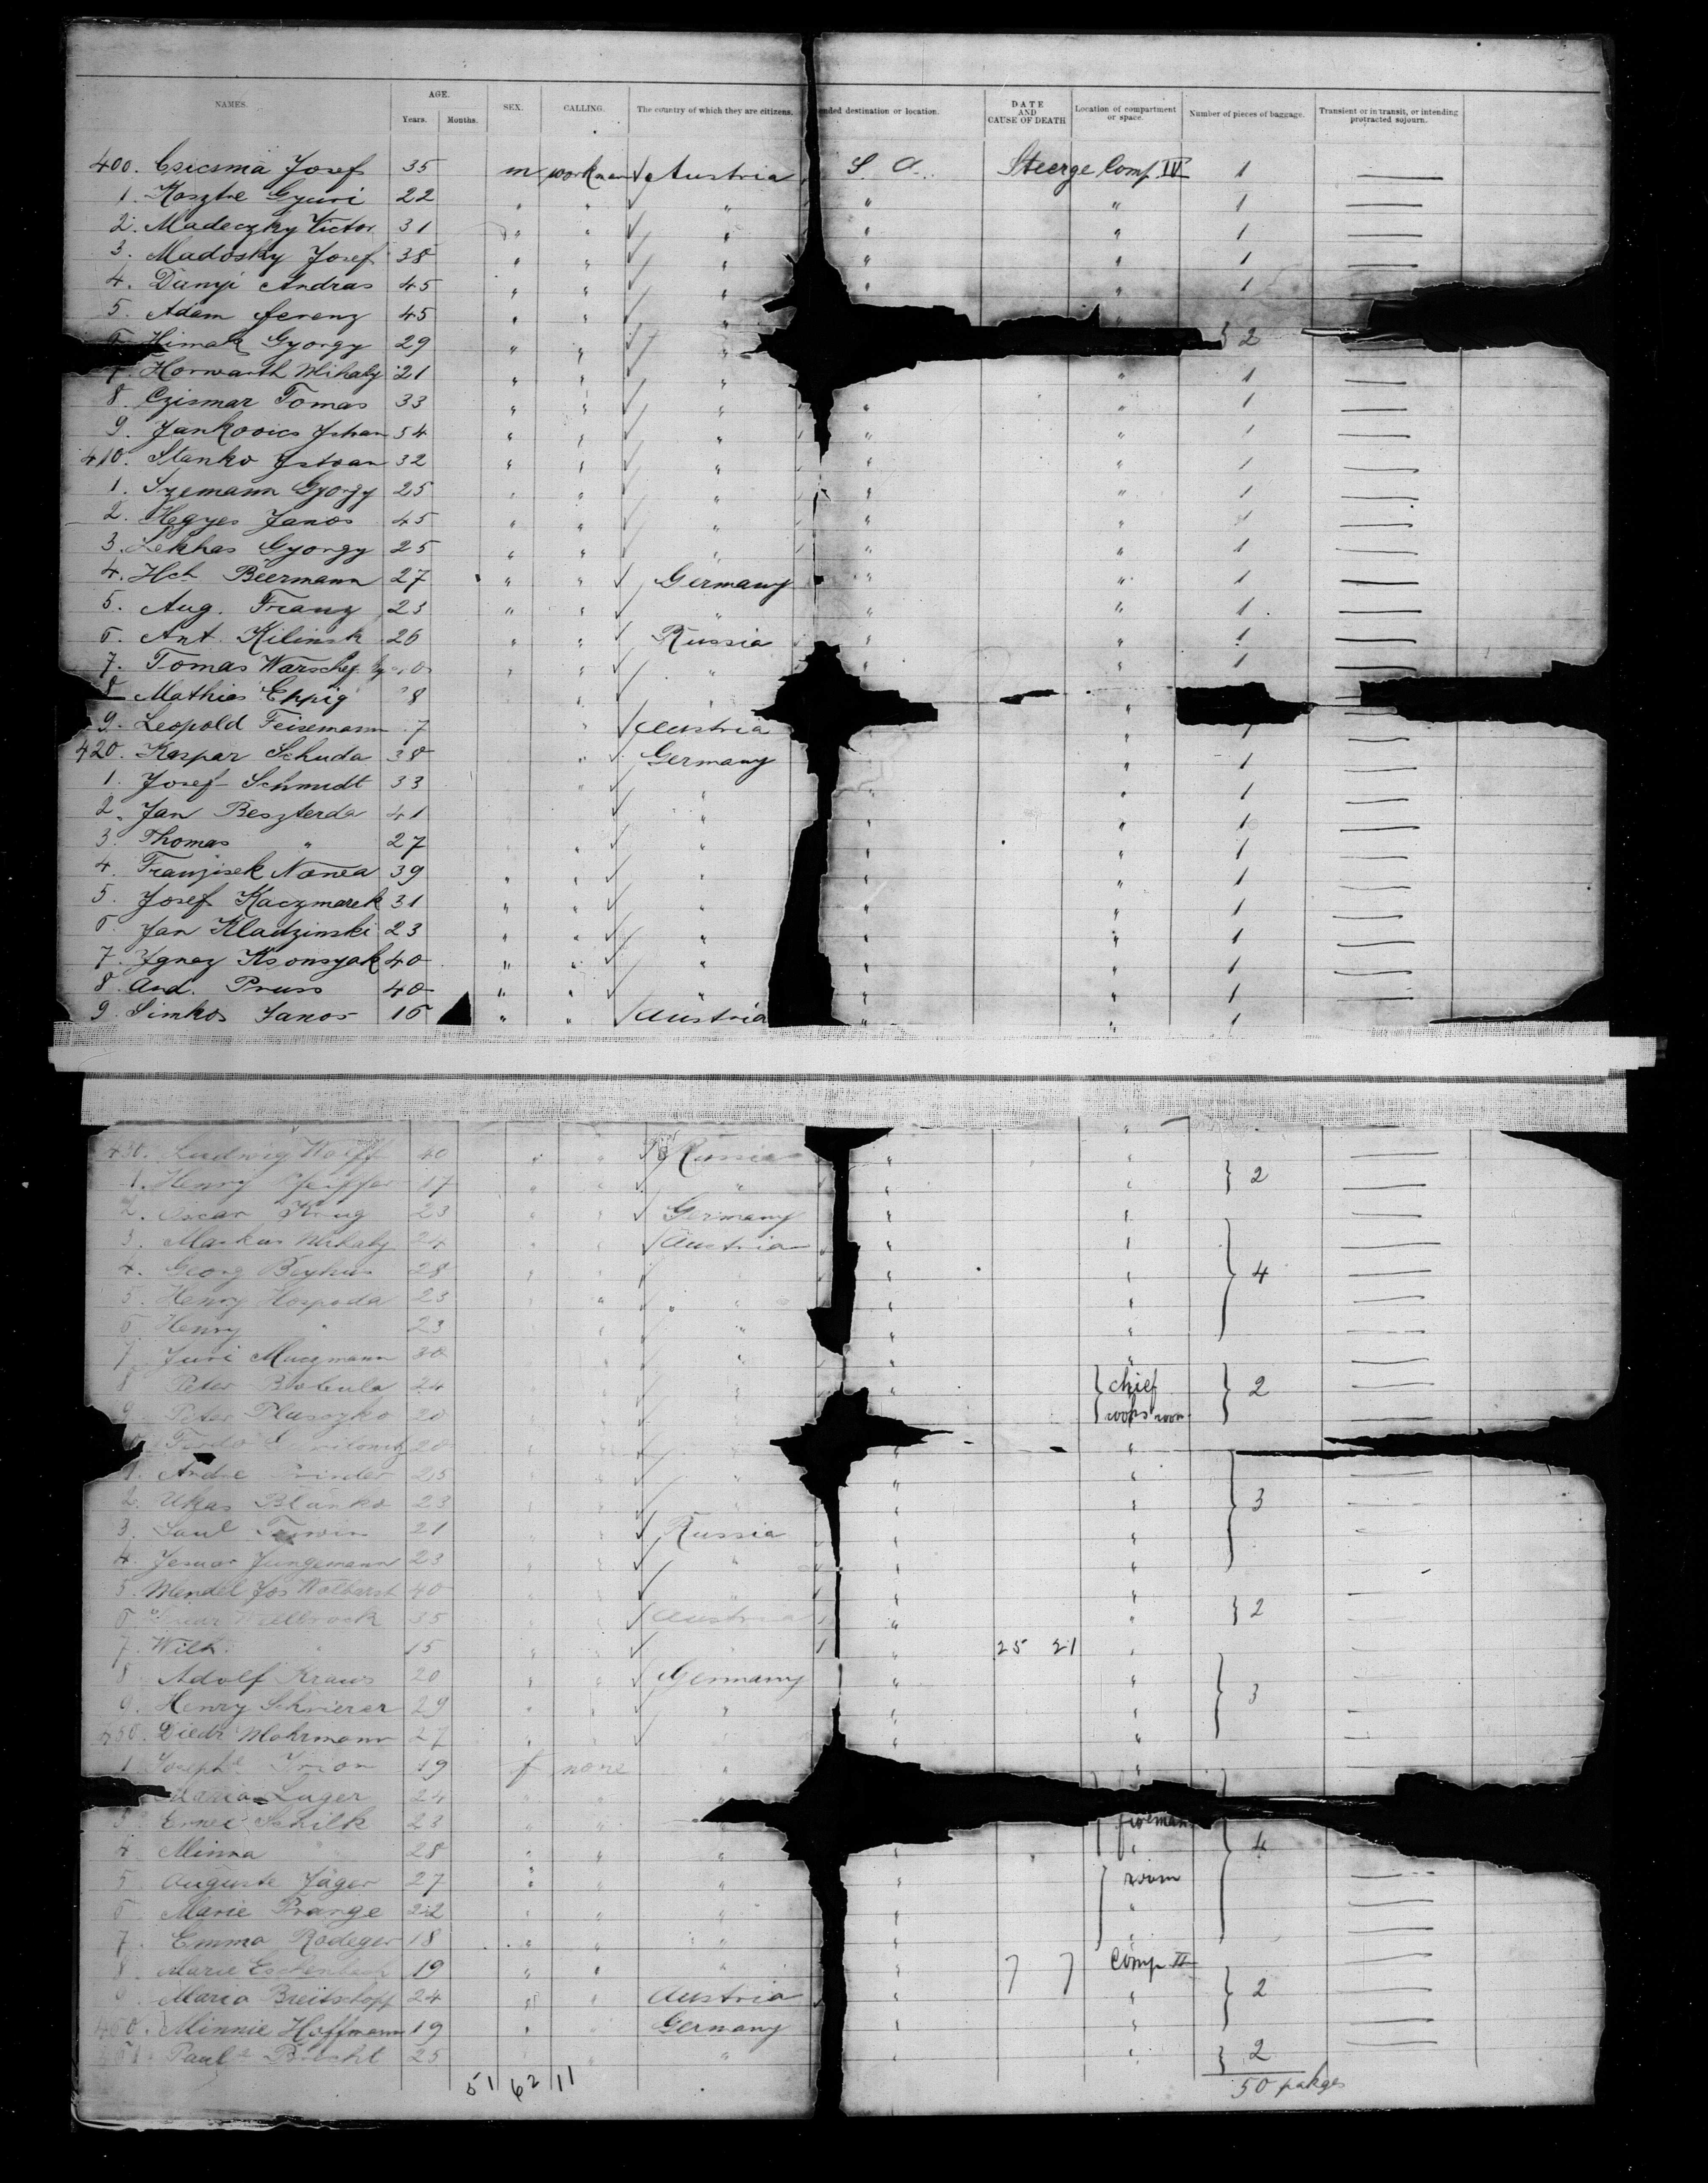 NAMES. AGE. Years. Months. SEX. CALLING. The country of which they are citizens. ended destination or location. DATE AND CAUSE OF DEATH Location of compartment or space. Number of pieces of baggage. Transient or in transit, or intending protracted sojourn.
400. Csicsma Josef 35 m workman ✓ Austria S. A. Steerge Comp. IV 1 —
1. Kosztre Gyuri 22 " " ✓ " " " 1 —
2. Madeczky Victor 31 " " ✓ " " " 1 —
3. Madosky Josef 38 " " ✓ " " " 1 —
4. Danyi Andras 45 " " ✓ " " " 1 —
5. Adam ferenz 45 " " ✓ "
6. Himak Gyorgy 29 " " ✓ " } 2 —
7. Horwarth Mihaly 21 " " ✓ " " 1 —
8. Czismar Tomas 33 " " ✓ " " " 1 —
9. Jankovics Johan 34 " " ✓ " " " 1 —
410. Stanko Istvan 32 " " ✓ " " " 1 —
1. Szemann Gyorgy 25 " " ✓ " " " 1 —
2. Hegyes Janos 45 " " ✓ " " " 1 —
3. Lekhas Gyorgy 25 " " ✓ " " " 1 —
4. Hch Beermann 27 " " ✓ Germany " " 1 —
5. Aug. Franz 23 " " ✓ " " " 1 —
6. Ant. Kilinsk 26 " " ✓ Russia " " 1 —
7. Tomas " " ✓ " " " 1 —
8 Mathias Eppig 8 " ✓ "
9. Leopold Feisemann 7 " ✓ Austria " —
420. Kaspar Schuda 38 " ✓ Germany " 1 —
1. Josef Schmidt 33 " ✓ " " " 1 —
2. Jan Beszterda 41 ✓ " " " 1 —
3. Thomas " 27 " ✓ " " " 1 —
4. Franzisek Nonea 39 " " ✓ " " " 1 —
5. Josef Kaczmarek 31 " " ✓ " " " 1 —
6. Jan Kladzinski 23 " " ✓ " " " 1 —
7. Ignaz Ksonsyak 40 " " ✓ " " " 1 —
8. And. Pruss 40 " " ✓ " " " 1 —
9. Simkos Janos 16 " " ✓ Austria " " 1
430. Ludwig Wolff 40 " " ✓ Russia " —
1. Henry Pfeiffer 17 " " ✓ " " " } 2 —
2. Oscar Krug 23 " " ✓ Germany " " —
3. Markus Mihaly 24 " " ✓ Austria " " —
4. Georg 28 " " ✓ " " } 4 —
5. Henry Hospoda 23 " " ✓ " " " —
6. Henry " 23 " ✓ " " " —
7. Juri Muczmann 30 " ✓ " " —
8 Peter Bobula 24 ✓ " " { chief } 2 —
9. Peter Pluszko 20 ✓ " { room —
20 ✓ " "
1. Andre 25 ✓ " " " —
2. Blanko 23 ✓ " " " } 3 —
3. Saul 21 ✓ Russia " " —
4. Jungemann 23 ✓ " " "
5. Mendel Jos 40 ✓ " " " —
6 Wellbrock 35 ✓ Austria " " } 2 —
7. Wilh. " 15 " ✓ " 1 " 25 21 "
8 Adolf Kraus 20 " " ✓ Germany " " —
9. Henry Schierer 29 " ✓ " " " } 3 —
450. Diedr Mohrmann 27 " " ✓ " " —
1 Josephe 19 f none " "
Maria Luger 24 " " "
3 Schilk 23 " " " fireman
4 Minna " 28 " " " " " } 4
5 Auguste Jäger 27 " " " " room —
6 Marie Prange 22 " " " " " —
7. Emma Rodeger 18 " " " " " —
8. Marie Eschenbach 19 " " " " 7 7 Comp II —
9 Maria Breitschopf 24 " " Austria " " } 2 —
460. Minnie Hoffmann 19 " " Germany " " —
461. 25 " " " " " } 2 —
51 62 11 50 pakges